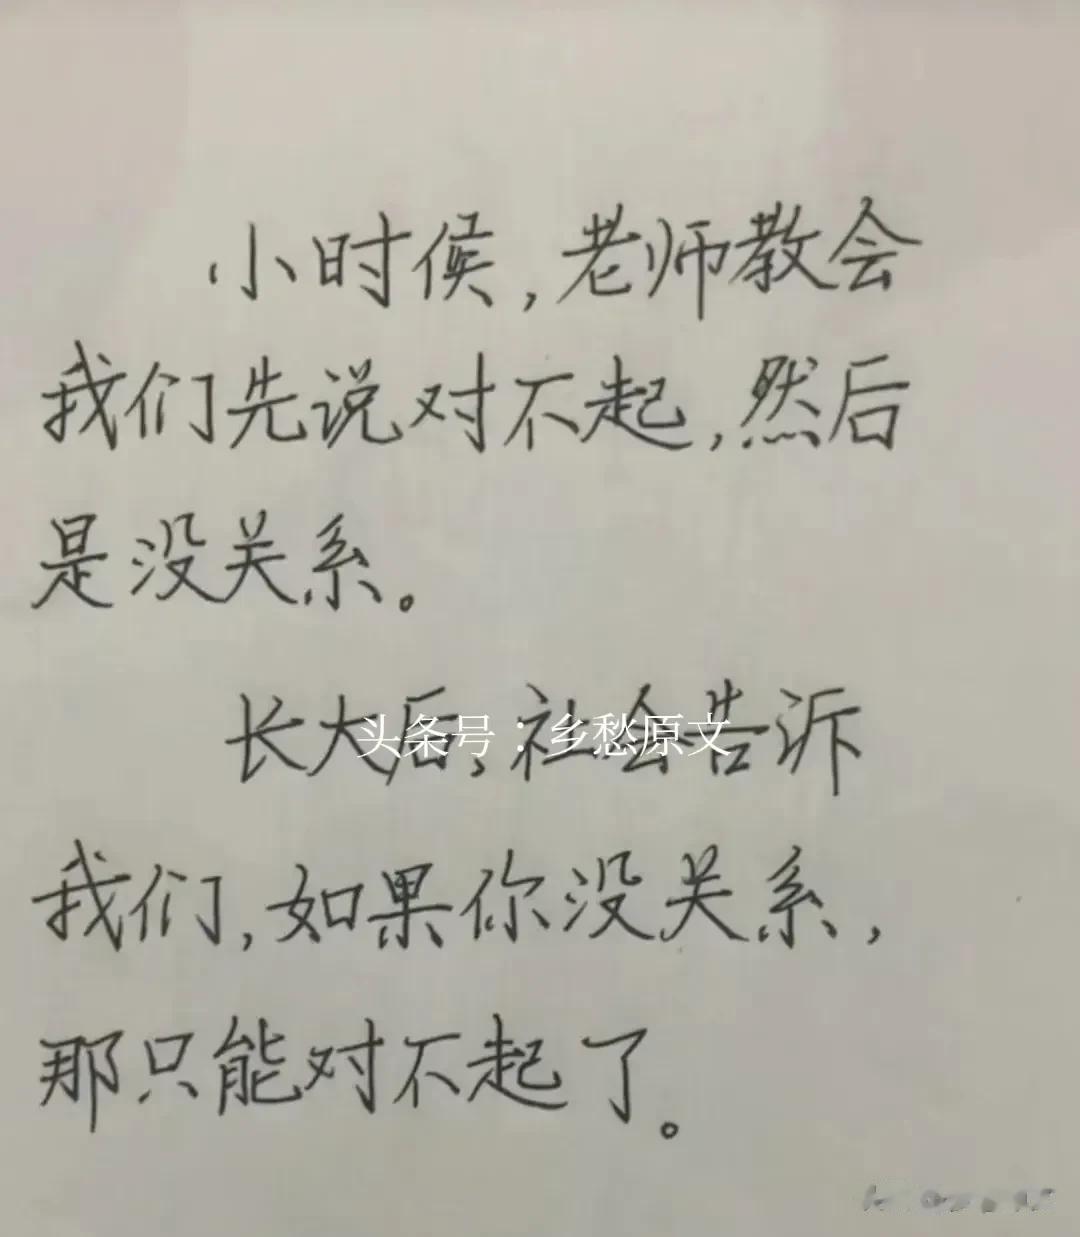 小时候,老师教会
我们先说对不起,然后
是没关系。
长大后,社会告诉
头条号:乡愁原文
我们,如果你没关系,
那只能对不起了。